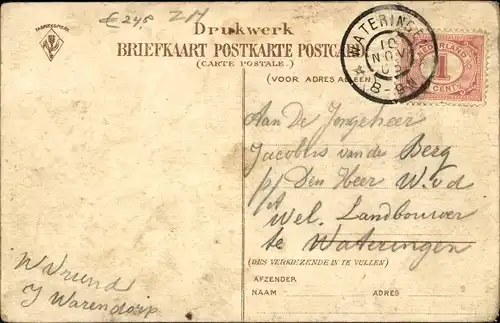 FABRIEKSMERK
€ 245 ZH
Drukwerk
BRIEFKAART POSTKARTE POSTCA
(CARTE POSTALE.)
(VOOR ADRES ALLEEN.)
WATERINGEN
10 NOV 05
8-9N
NEDERLAND
1
CENT
Aan De Jongeheer
Jacobus van de Berg
p/ Den Heer W. v d
Wel. Landbouwer
te Wateringen
(DES VERKIEZENDE IN TE VULLEN)
AFZENDER
NAAM ADRES
Vriend
J Warendorp